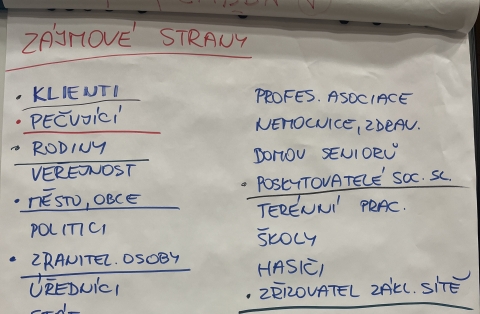 ZÁJMOVÉ STRANY
• KLIENTI
• PEČUJÍCÍ
• RODINY
VEŘEJNOST
• MĚSTO, OBCE
POLITICI
• ZRANITEL. OSOBY
ÚŘEDNÍCI
PROFES. ASOCIACE
NEMOCNICE, ZDRAV.
DOMOV SENIORŮ
• POSKYTOVATELÉ SOC. SL.
TERÉNNÍ PRAC.
ŠKOLY
HASIČI
• ZŘIZOVATEL ZÁKL. SÍTĚ